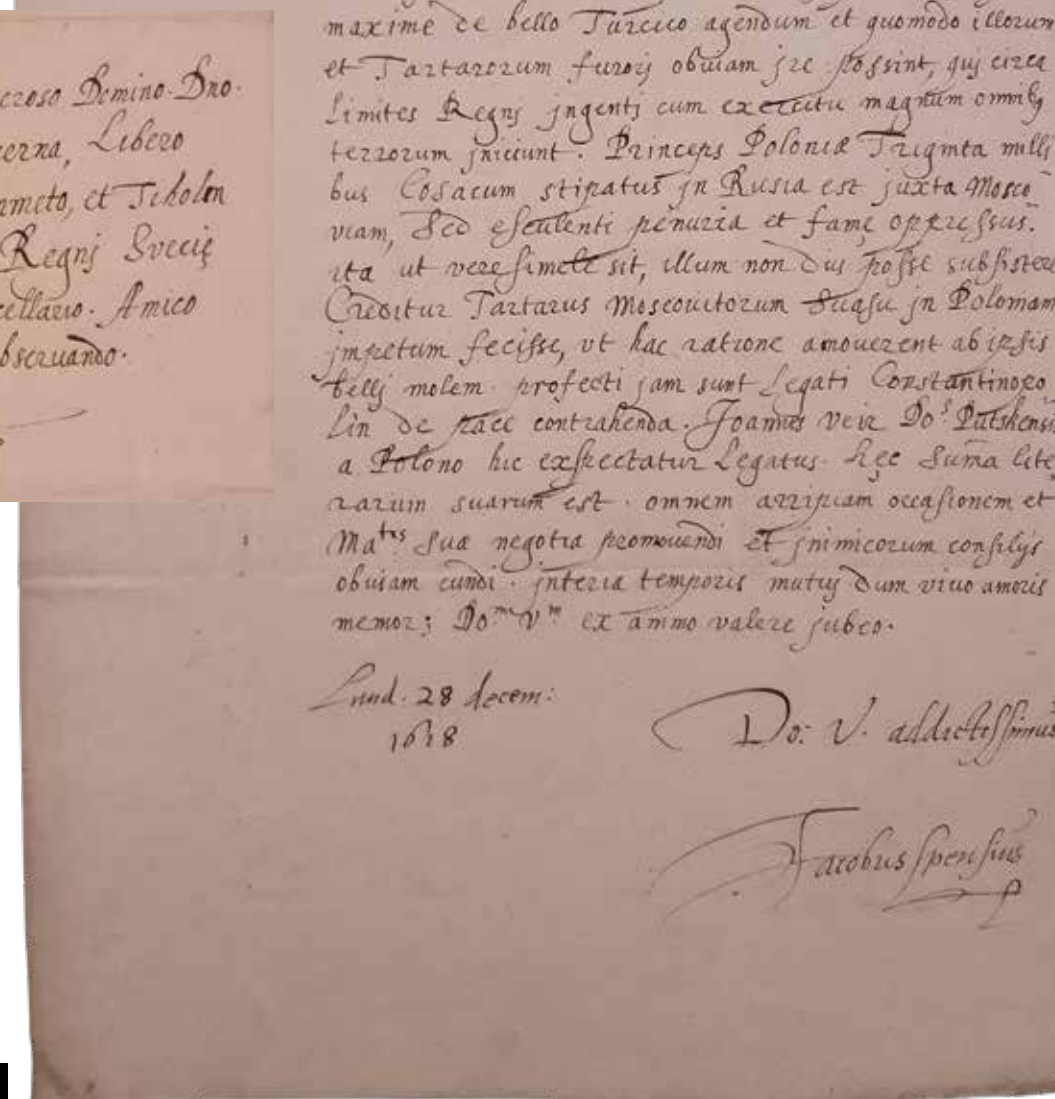 eroso Domino Dno.
erna, Libero
imeto, et Tiholm
Regnj Svecię
cellario. Amico
bseruando.
maxime de bello Turcico agendum et quomodo illorum
et Tartarorum furorj obuiam jre possint, quj circa
Limites Regnj jngentj cum exercitu magnum omnibȝ
terrorum jniciunt. Princeps Poloniæ Triginta milli
bus Cosacum stipatus jn Rusia est juxta Mosco
viam, Sed esculenti penuria et fame oppressus.
ita ut veresimele sit, illum non diu posse subsistere
Creditur Tartarus Moscouitorum Suasu jn Poloniam
jmpetum fecisse, vt hac ratione amouerent ab ipsis
bellj molem. profecti jam sunt Legati Constantinopo
lin de pace contrahenda. Joannes Veir Do:s Putskensis
a Polono hic exspectatur Legatus. hęc Suma lite
rarum suarum est. omnem arripiam occasionem et
Matis Suæ negotia promouendi et jnimicorum consilijs
obuiam eundi. jnteria temporis mutuj dum viuo amoris
memor; Do:m V:m ex animo valere jubeo.
Lund. 28 decem:
1618
Do: V. addictissimus
Jacobus Spensius